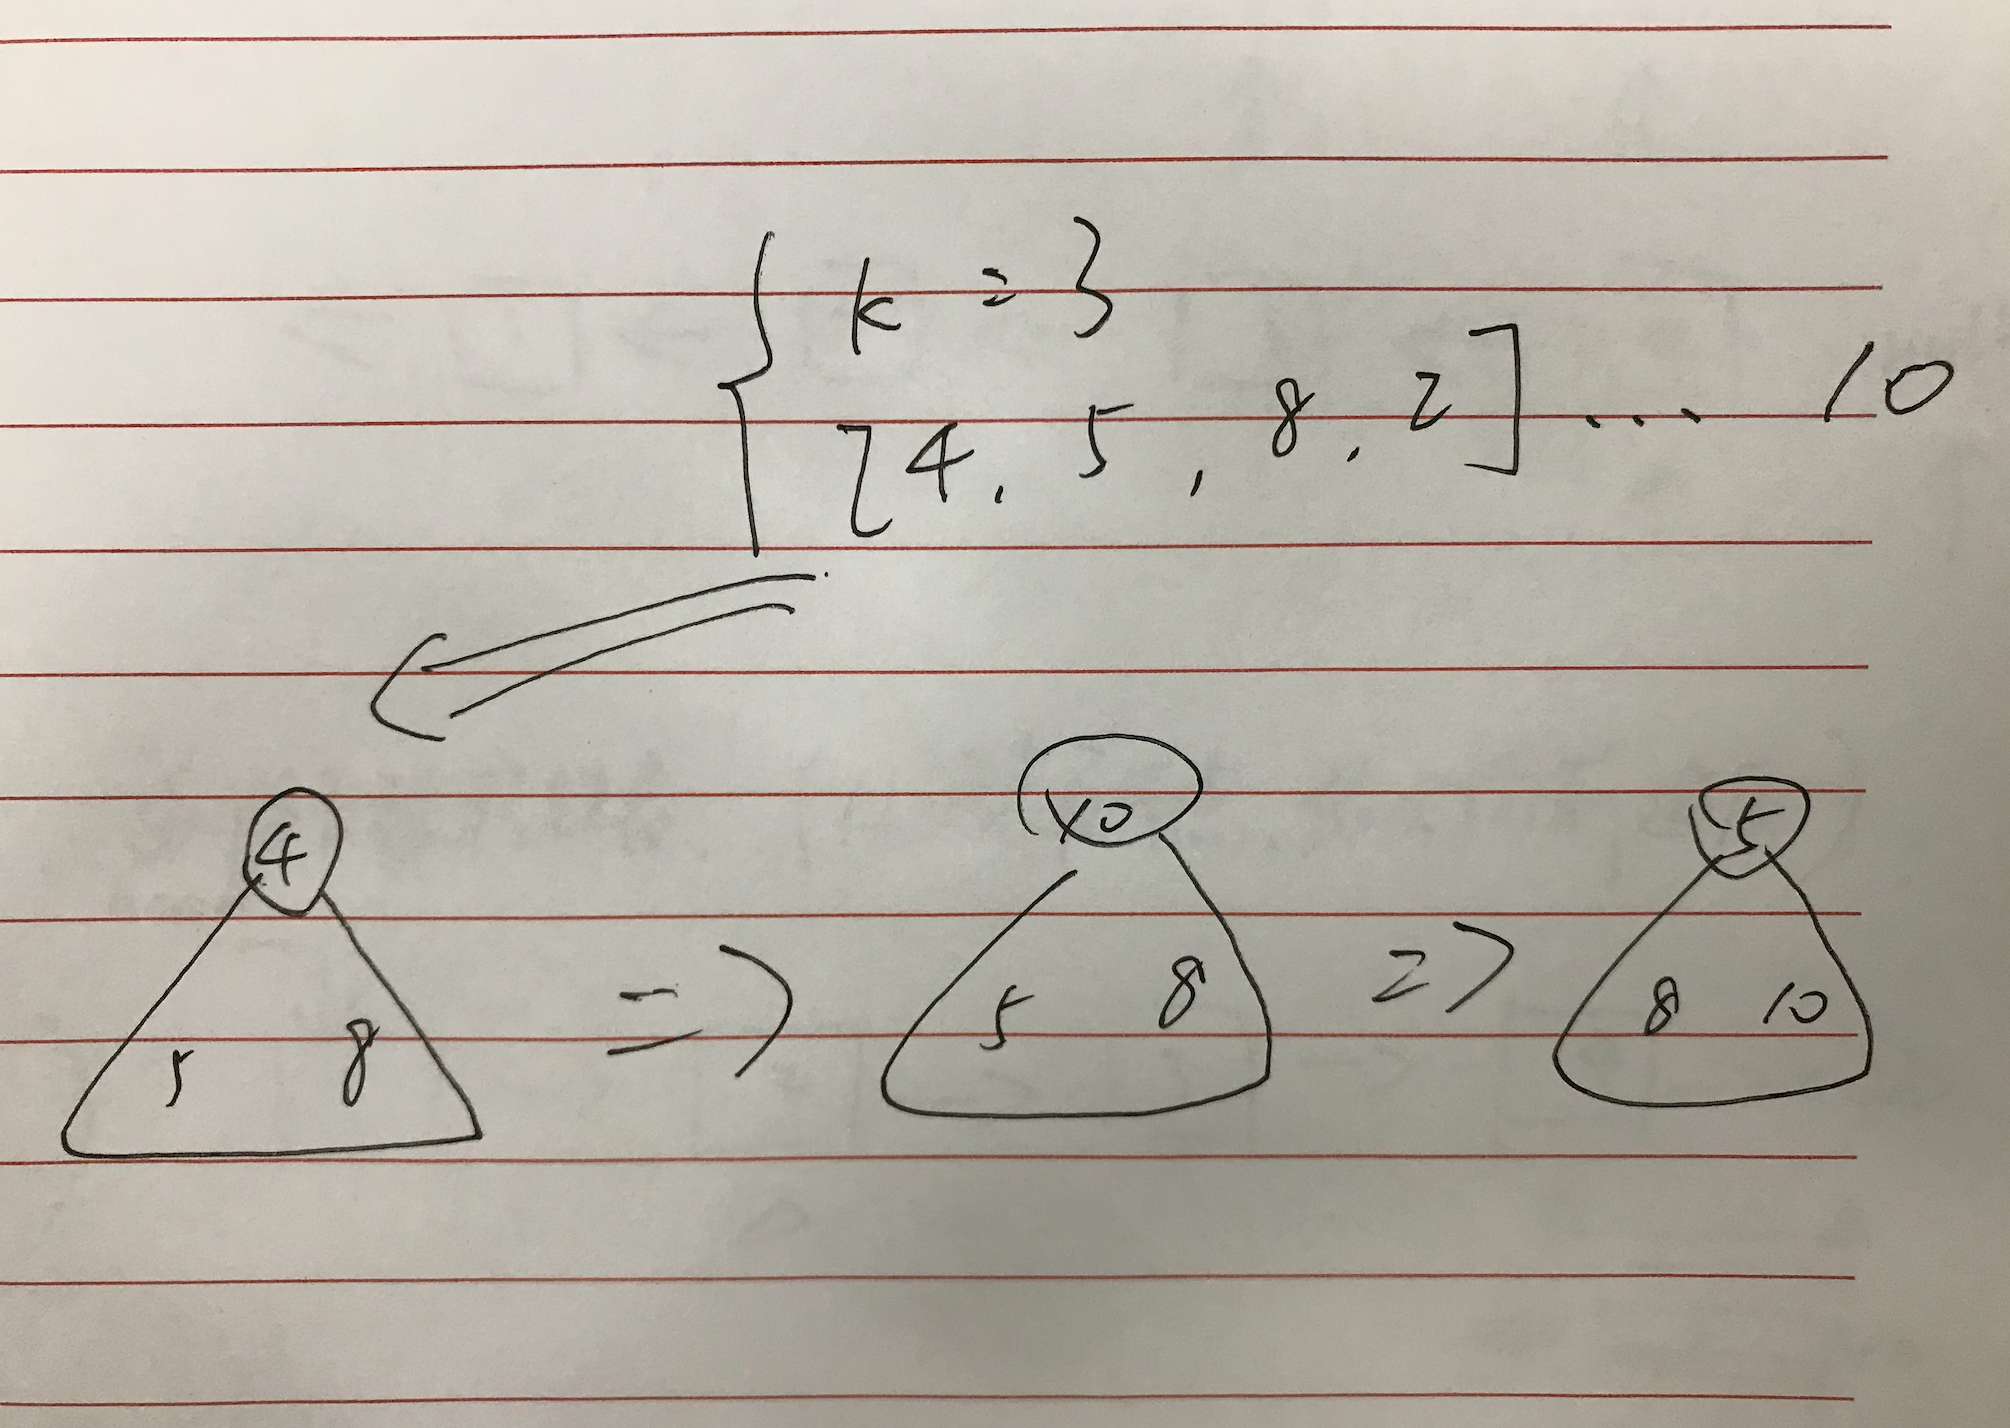 k = 3
[4, 5, 8, 2] ... 10
4
5 8
=>
10
5 8
=>
5
8 10